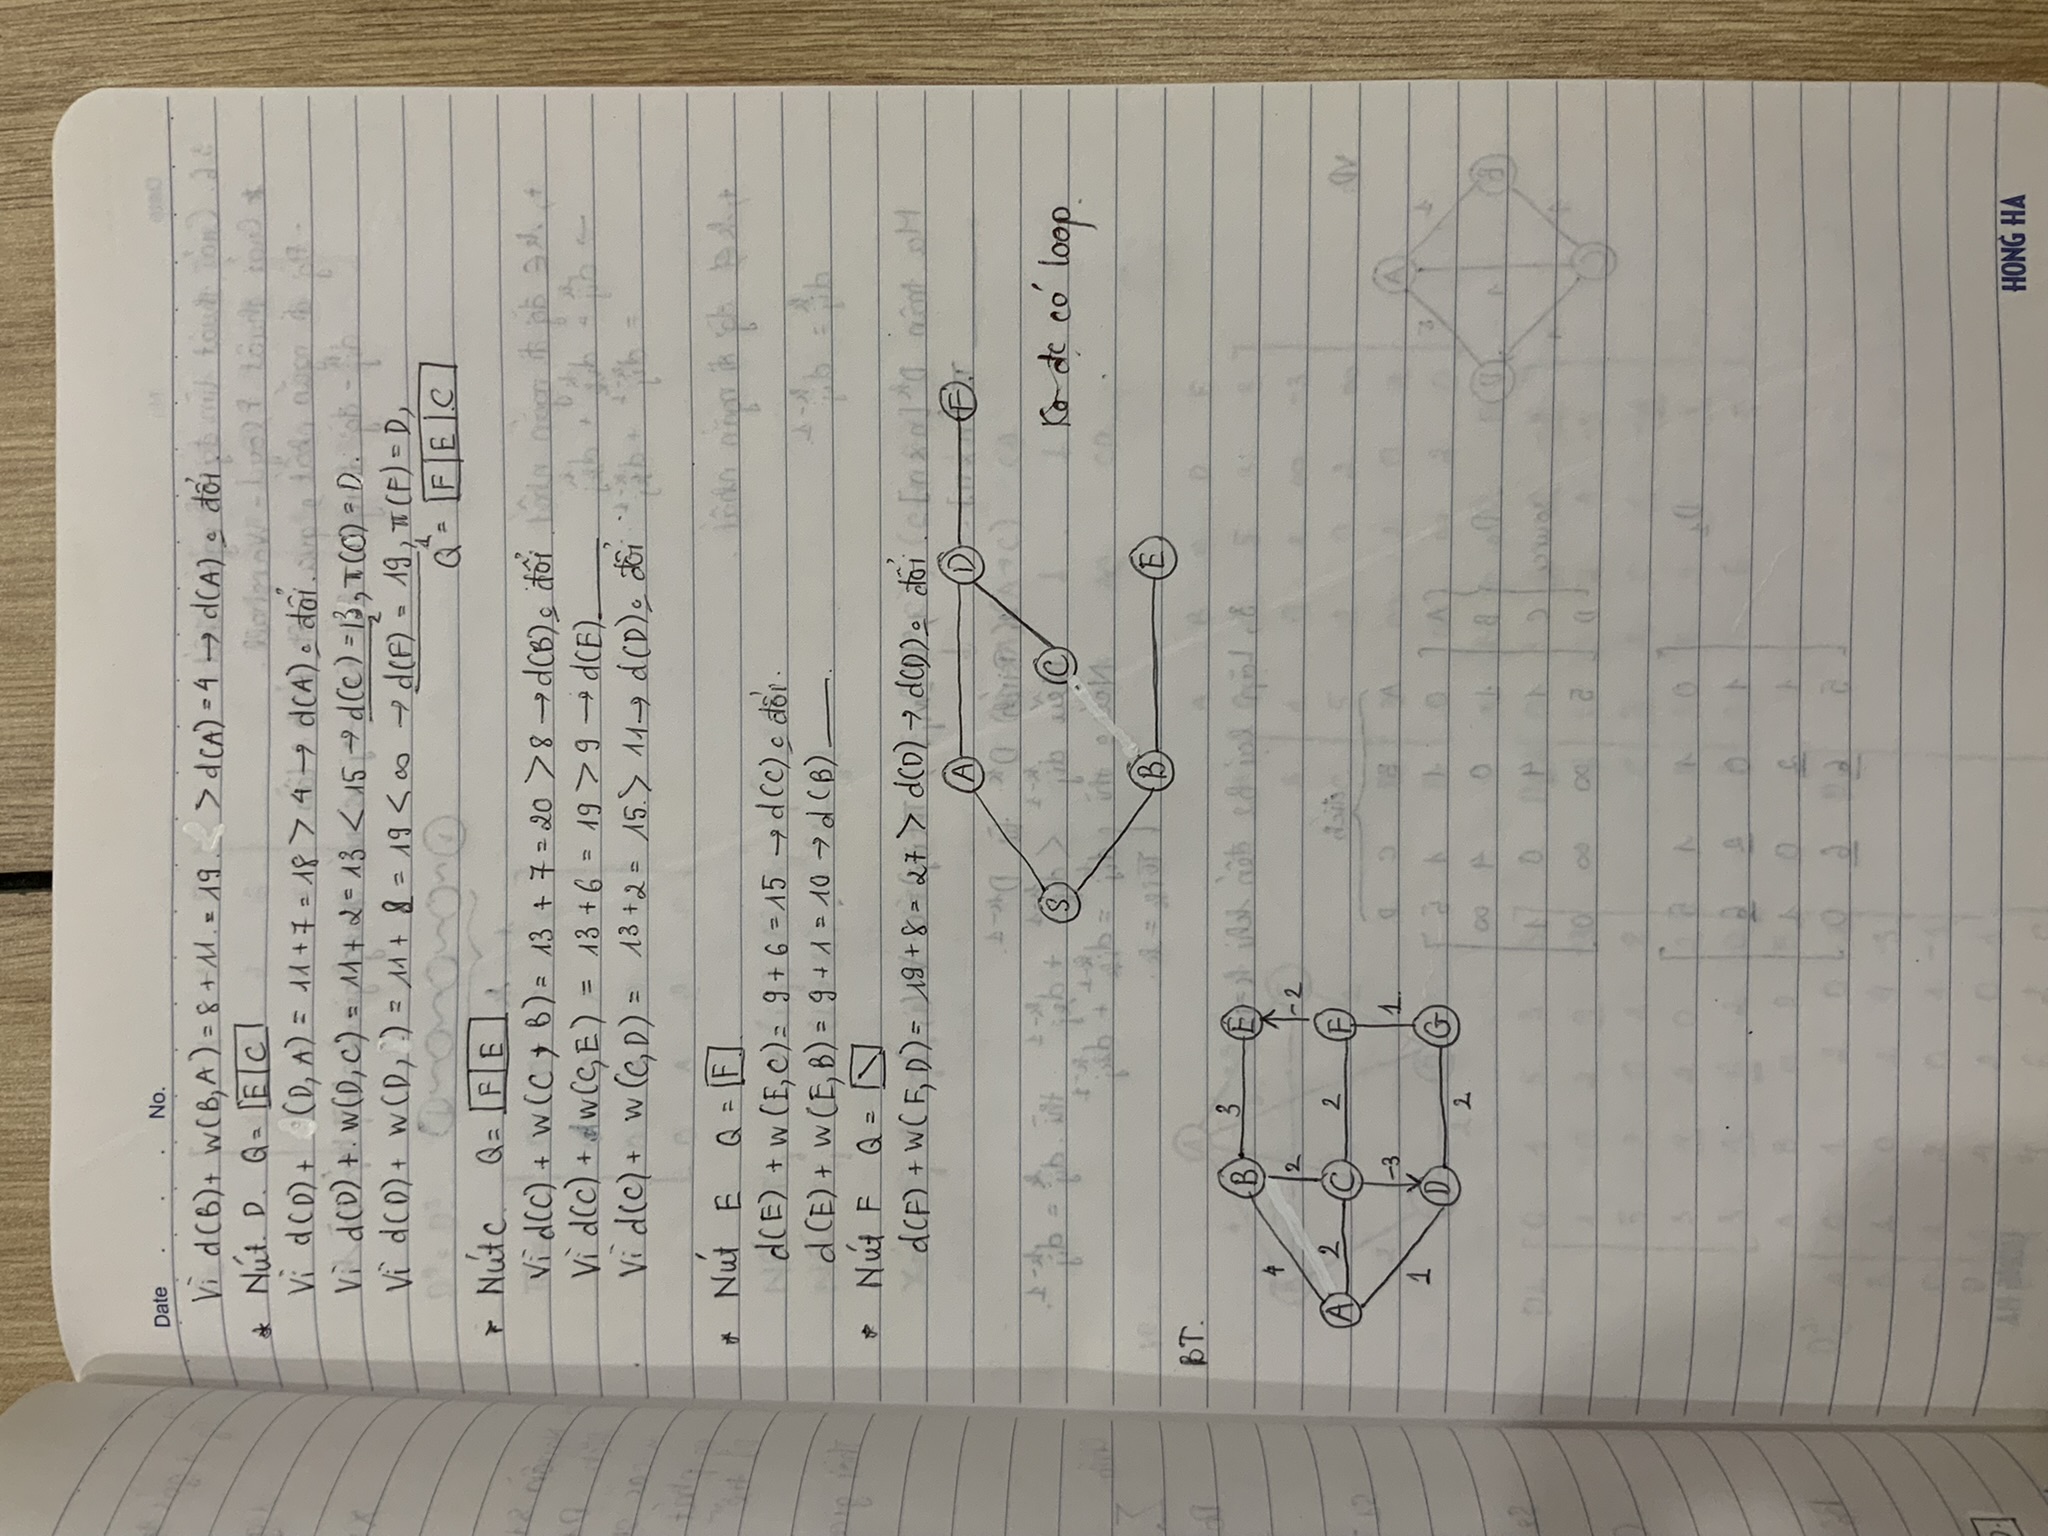 Date . . . No.
Vì d(B) + w(B,A) = 8 + 11 = 19 > d(A) = 4 → d(A) o đổi.
* Nút D. Q = E C
Vì d(D) + (D,A) = 11 + 7 = 18 > 4 → d(A) o đổi.
Vì d(D) + w(D,C) = 11 + 2 = 13 < 15 → d(C) = 13, π(C) = D.
2
Vì d(D) + w(D, ) = 11 + 8 = 19 < ∞ → d(F) = 19, π(F) = D,
1
Q = F E C
* Nút C Q = F E
Vì d(C) + w(C, B) = 13 + 7 = 20 > 8 → d(B) o đổi
Vì d(C) + w(C,E) = 13 + 6 = 19 > 9 → d(E) ___
Vì d(C) + w(C,D) = 13 + 2 = 15 > 11 → d(D) o đổi
* Nút E Q = F
d(E) + w(E,C) = 9 + 6 = 15 → d(C) o đổi.
d(E) + w(E,B) = 9 + 1 = 10 → d(B) ___.
* Nút F Q = \
d(F) + w(F,D) = 19 + 8 = 27 > d(D) → d(D) o đổi.
A D F
S C Ko đc có loop.
B E
BT.
B 3 E
4 2 -2
A 2 C 2 F
-3 1
1 D 2 G
HONG HA